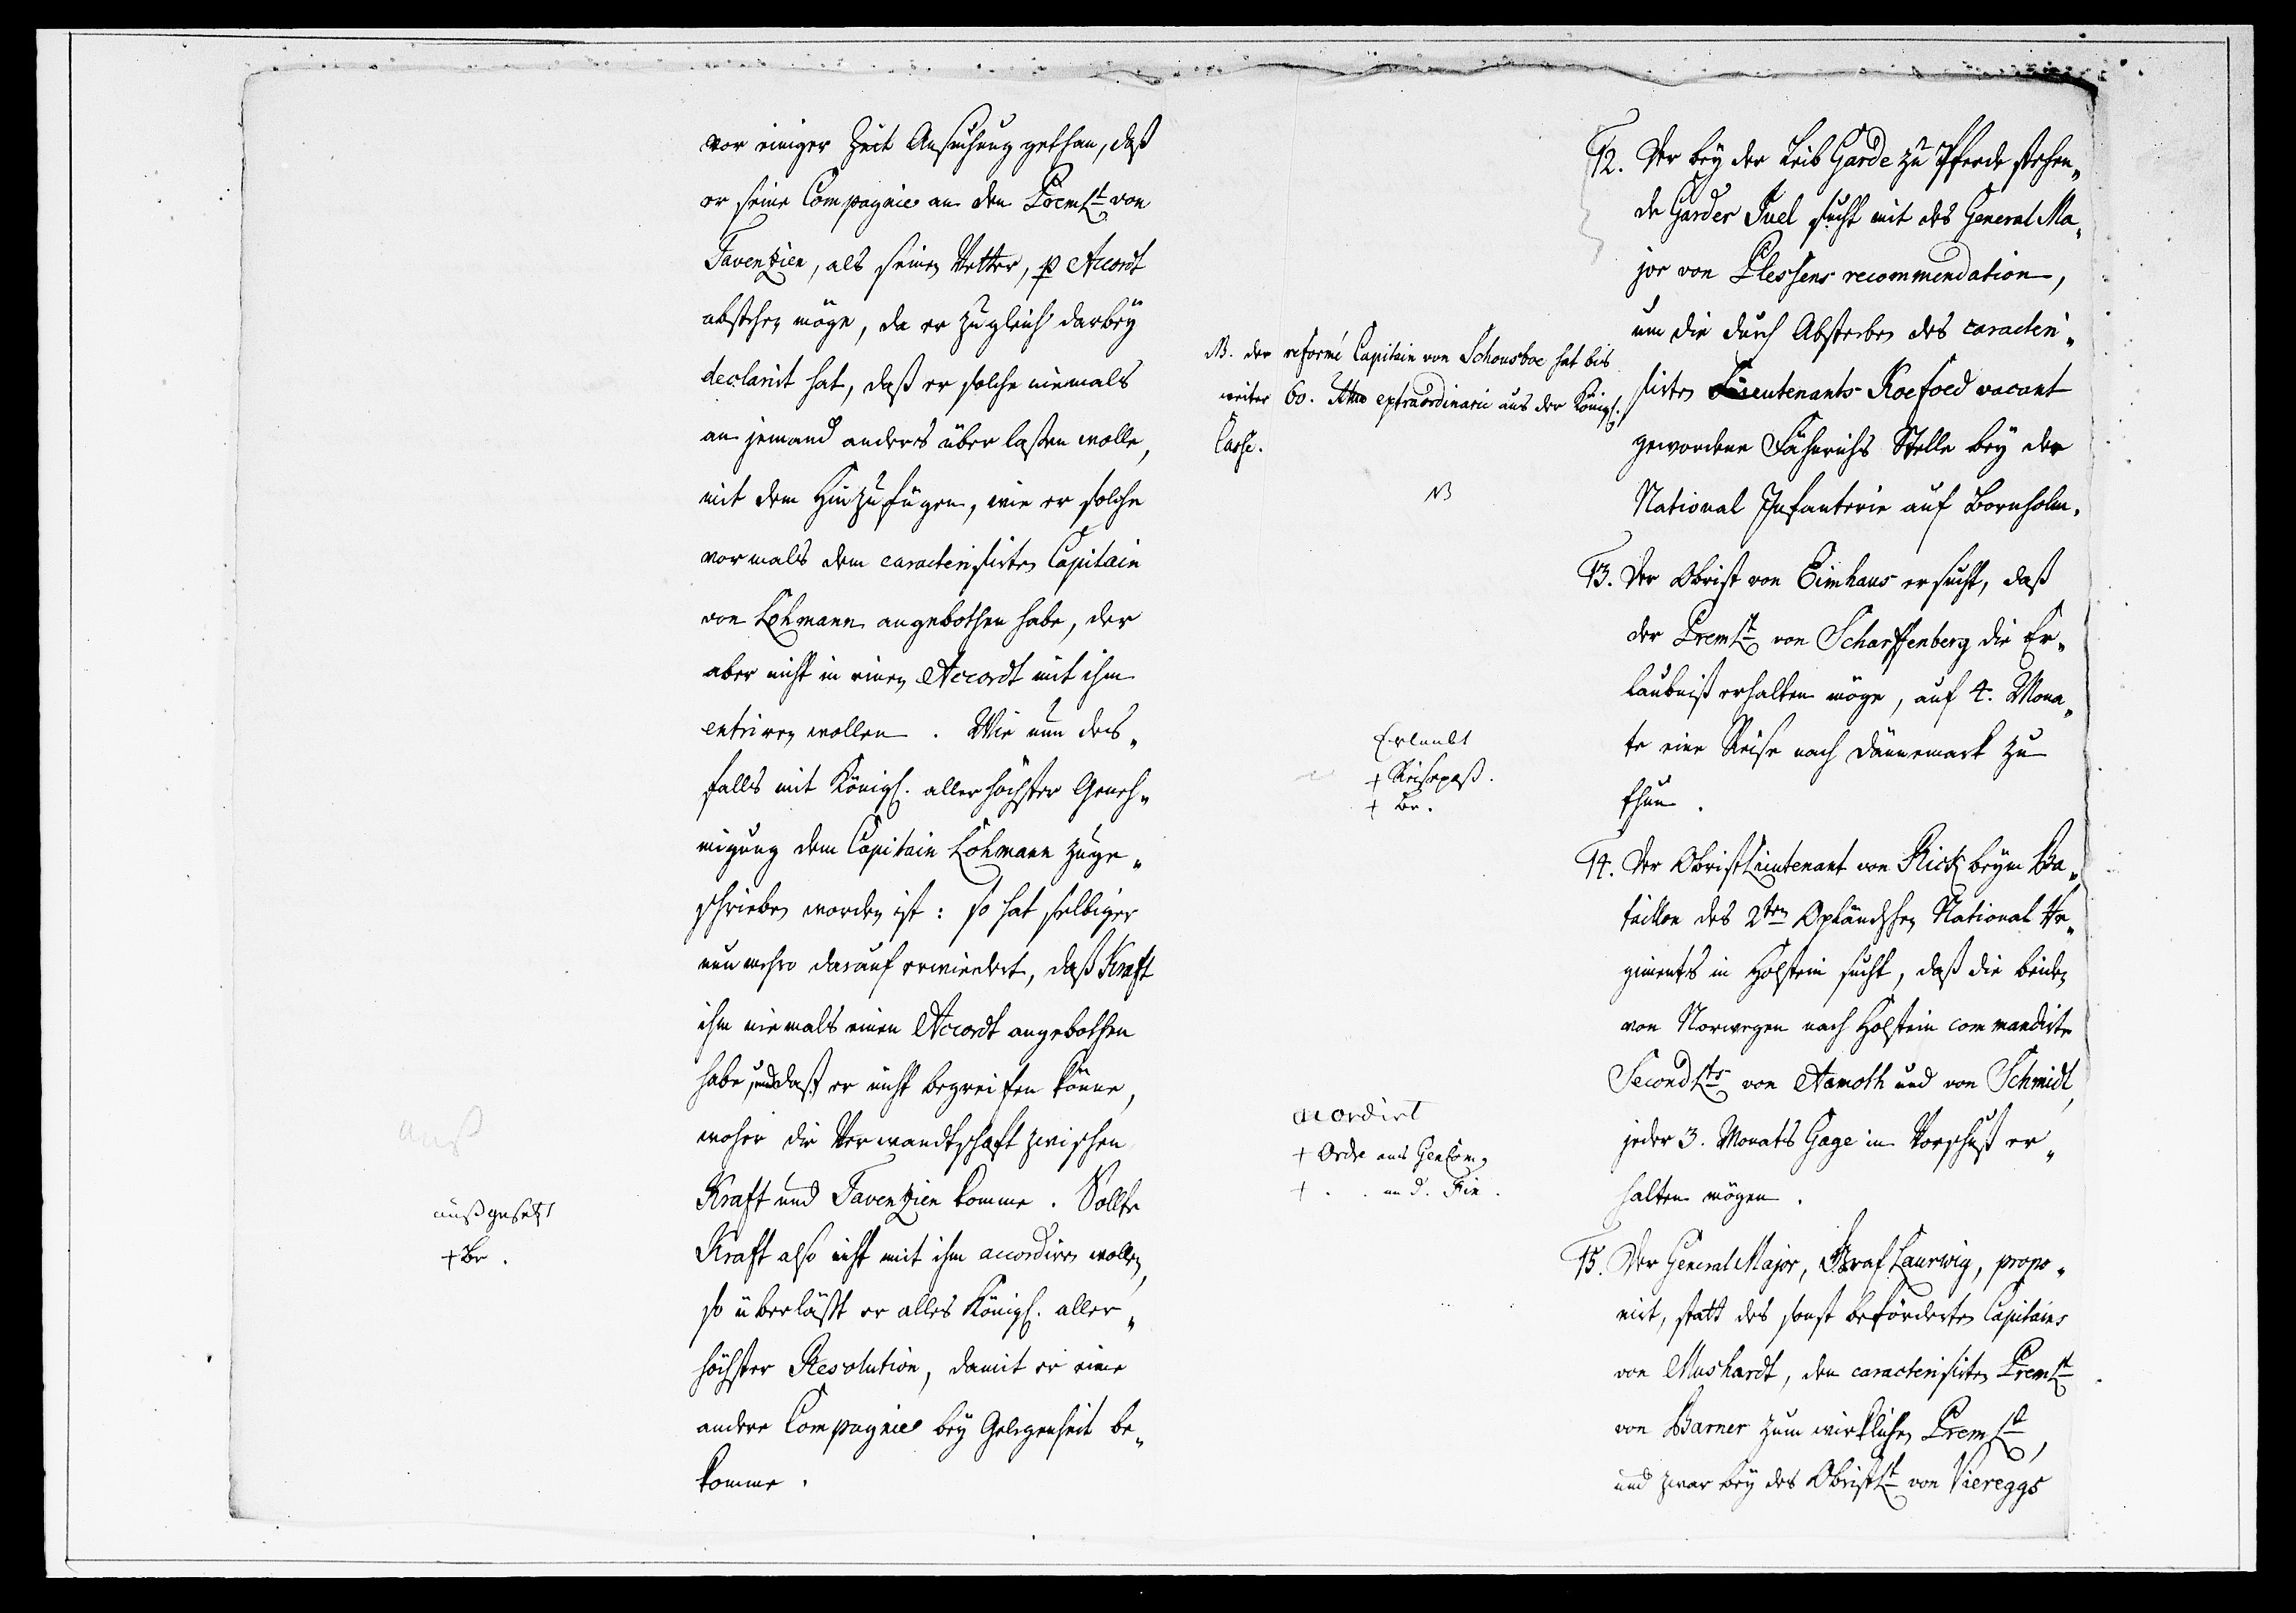 vor einiger Zeit Ansuchung gethan, daß
er seine Compagnie an den PremLt von
Tavenzien, als seinen Vetter, p Accordt
abstehen möge, da er zugleich darbey
declarirt hat, daß er solche niemals
an jemand anders überlaßen wolle,
mit dem Hinzufügen, wie er solche
vormals dem caracterisirten Capitain
von Lohmann angebothen habe, der
aber nicht in einen Accordt mit ihm
entriren wollen. Wie nun des„
falls mit Königl. allerhöchster Geneh„
migung dem Capitain Lohmann zuge„
schrieben worden ist: so hat selbiger
nunmehro darauf erwiedert, daß Kraft
ihm niemals einen Accordt angebothen
habe, und daß er nicht begreiffen könne,
woher die Verwandtschaft zwischen
Kraft und Tavenzien komme. Sollte
Kraft also nicht mit ihm accordiren wollen,
so überläßt er alles Königl. aller„
höchster Resolution, damit er eine
andere Compagnie bey Gelegenheit be„
komme.
auß
außgesetzt
+ Br.
12. Der bey der Leib Garde zu Pferde stehen„
de Garder Juel sucht mit des General Ma„
jor von Plessens recommendation,
um die durch Absterben des caracteri„
sirten Lieutenants Koefoed vacant
gewordene Fähnrichs Stelle bey der
National Infanterie auf Bornholm.
NB. der reformé Capitain von Schousboe hat bis
weiter 60. extraordinarie aus der Königl.
Casse.
NB
13. Der Obrist von Eimhaus ersucht, daß
der PremLt von Scharffenberg die Er„
laubniß erhalten möge, auf 4. Mona„
te eine Reise nach Dännemark zu
thun.
Erlaubt
+ Reisepaß.
+ Br.
14. Der ObristLieutenant von Rick beym Ba„
taillon des 2ten Oplandschen National Re„
giments in Holstein sucht, daß die beiden
von Norwegen nach Holstein commandirte
SecondLts von Aamoth und von Schmidt,
jeder 3. Monats Gage in Vorschuß er„
halten mögen.
accordirt
+ Ordre ans GenCom,
+ . . an d. Fin.
15. Der General Major, Graf Laurwig, propo„
nirt, statt des sonst beförderten Capitains
von Mushardt, den caracterisirten PremLt
von Barner zum wirklichen PremLt,
und zwar bey des ObristLt von Viereggs